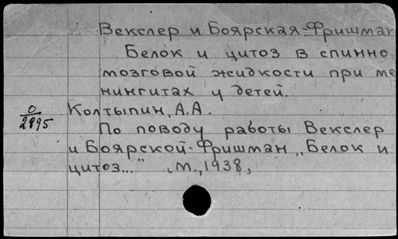 Векслер и Боярская-Фришман
Белок и цитоз в спинно
мозговой жидкости при ме
нингитах у детей.
О/2895
Колтыпин, А.А.
По поводу работы Векслер
и Боярской-Фришман „Белок и
цитоз...", М., 1938,